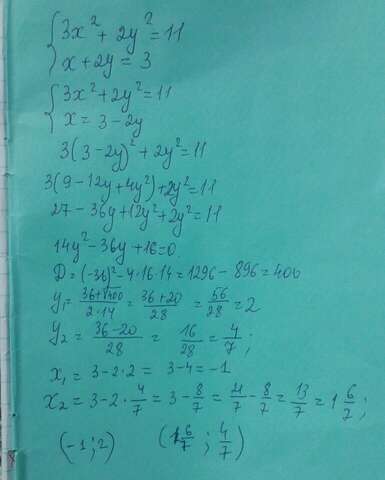 { 3x² + 2y² = 11
x + 2y = 3
{ 3x² + 2y² = 11
x = 3 - 2y
3(3 - 2y)² + 2y² = 11
3(9 - 12y + 4y²) + 2y² = 11
27 - 36y + 12y² + 2y² = 11
14y² - 36y + 16 = 0
D = (-36)² - 4·16·14 = 1296 - 896 = 400
y₁ = (36+√400)/(2·14) = (36+20)/28 = 56/28 = 2
y₂ = (36-20)/28 = 16/28 = 4/7;
x₁ = 3 - 2·2 = 3 - 4 = -1
x₂ = 3 - 2·4/7 = 3 - 8/7 = 21/7 - 8/7 = 13/7 = 1 6/7;
(-1; 2) (1 6/7; 4/7)